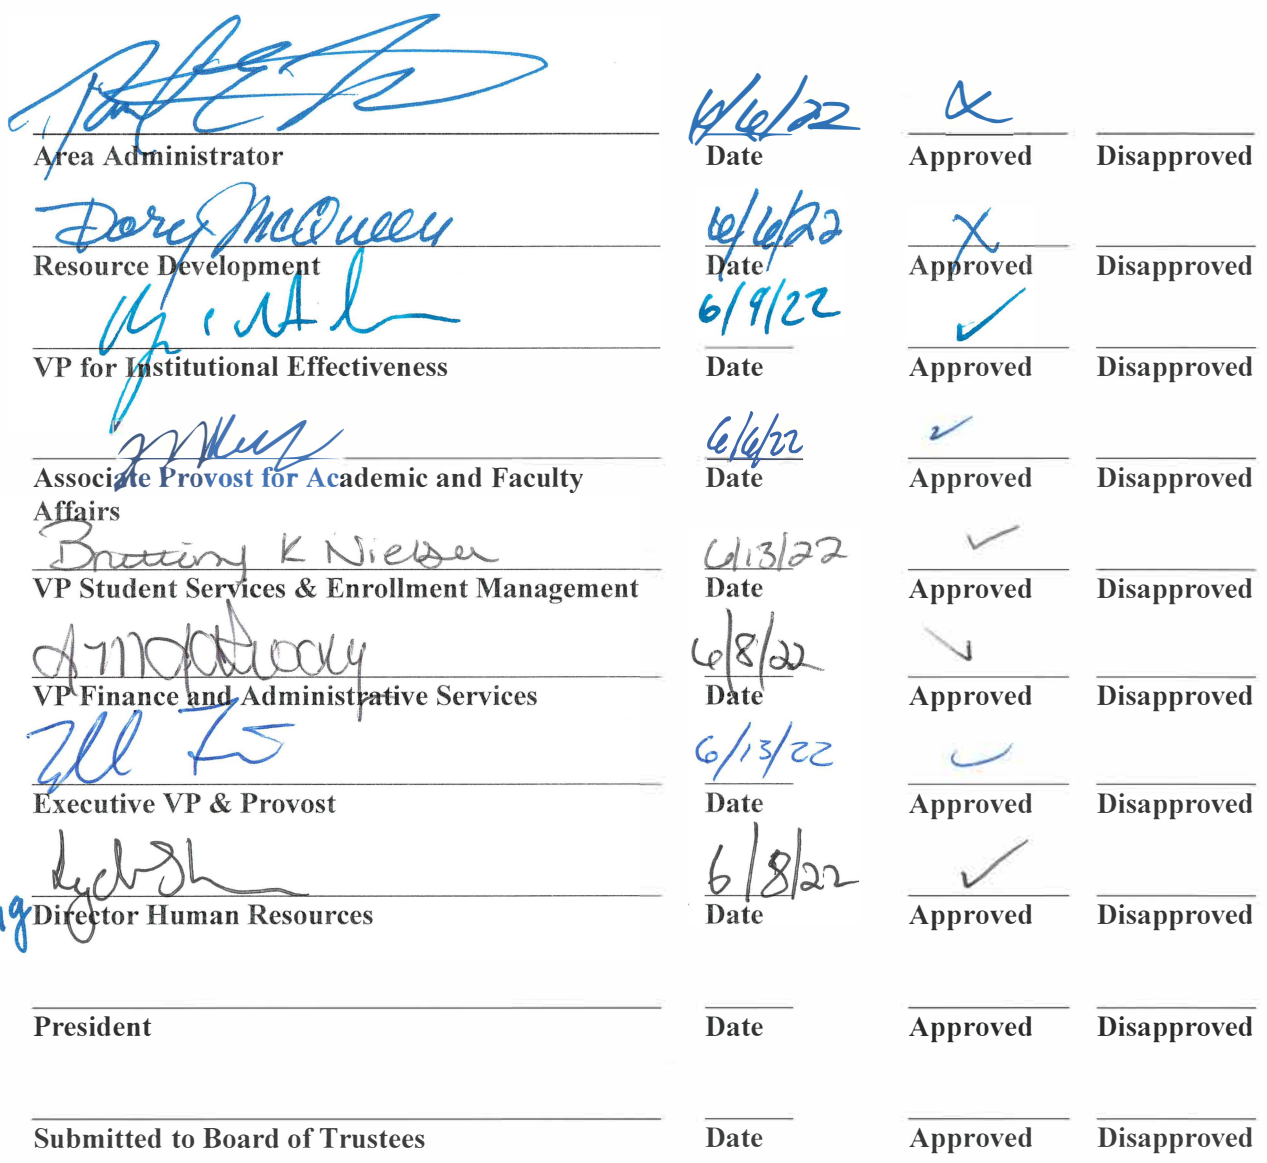 6/6/22
Area Administrator Date Approved Disapproved
Dory McQueen 6/6/22 X
Resource Development Date Approved Disapproved
6/9/22 ✓
VP for Institutional Effectiveness Date Approved Disapproved
6/6/22 ✓
Associate Provost for Academic and Faculty Date Approved Disapproved
Affairs
Brittiny K Nielsen 6/13/22 ✓
VP Student Services & Enrollment Management Date Approved Disapproved
6/8/22
VP Finance and Administrative Services Date Approved Disapproved
6/13/22 ✓
Executive VP & Provost Date Approved Disapproved
6/8/22 ✓
Director Human Resources Date Approved Disapproved
President Date Approved Disapproved
Submitted to Board of Trustees Date Approved Disapproved